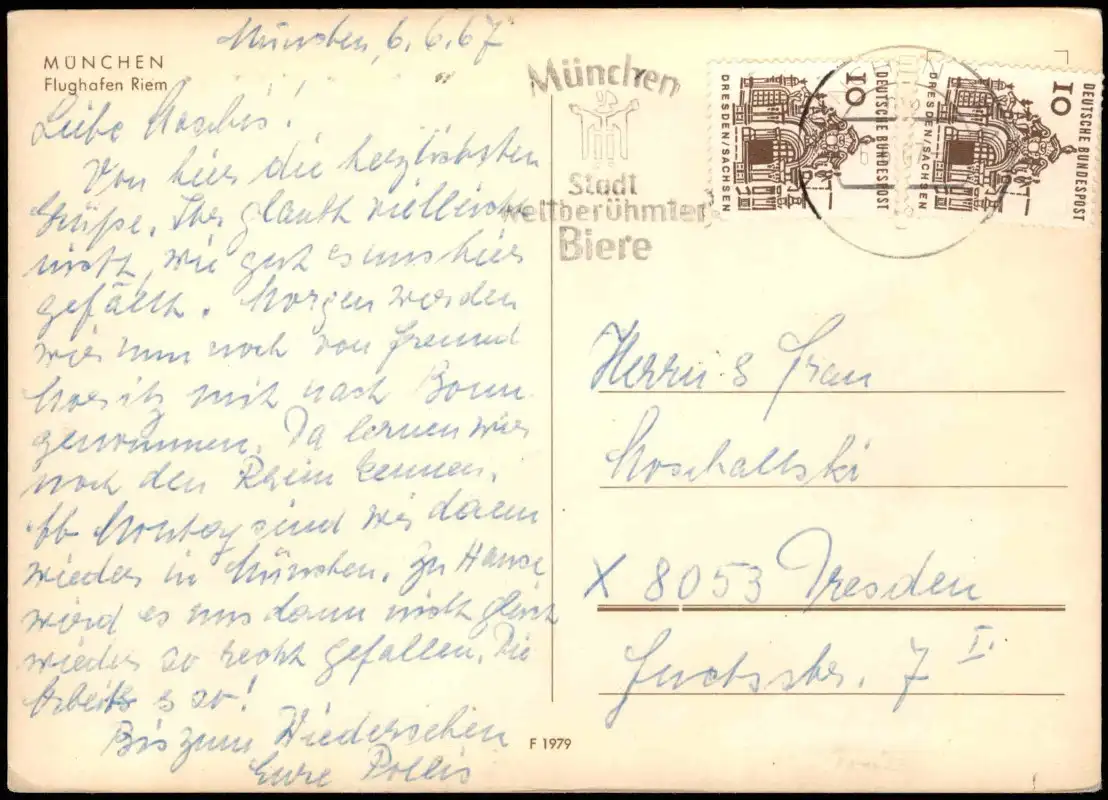 München, 6.6.67
MÜNCHEN
Flughafen Riem
Liebe Moschis!
Von hier die herzlichsten
Grüße. Ihr glaubt vielleicht
nicht, wie gut es uns hier
gefällt. Morgen werden
wir nun noch von Freund
Moritz mit nach Bonn
genommen. Da lernen wir
noch den Rhein kennen.
Ab Montag sind wir dann
wieder in München. Zu Hause
wird es uns dann nicht gleich
wieder so recht gefallen. Die
Arbeit & so!
Bis zum Wiedersehen
Eure Pollis
München
Stadt
weltberühmter
Biere
10
DEUTSCHE BUNDESPOST
DRESDEN/SACHSEN
10
DEUTSCHE BUNDESPOST
DRESDEN/SACHSEN
Herrn & Frau
Moschallski
X 8053 Dresden
Fuchsstr. 7 I.
F 1979